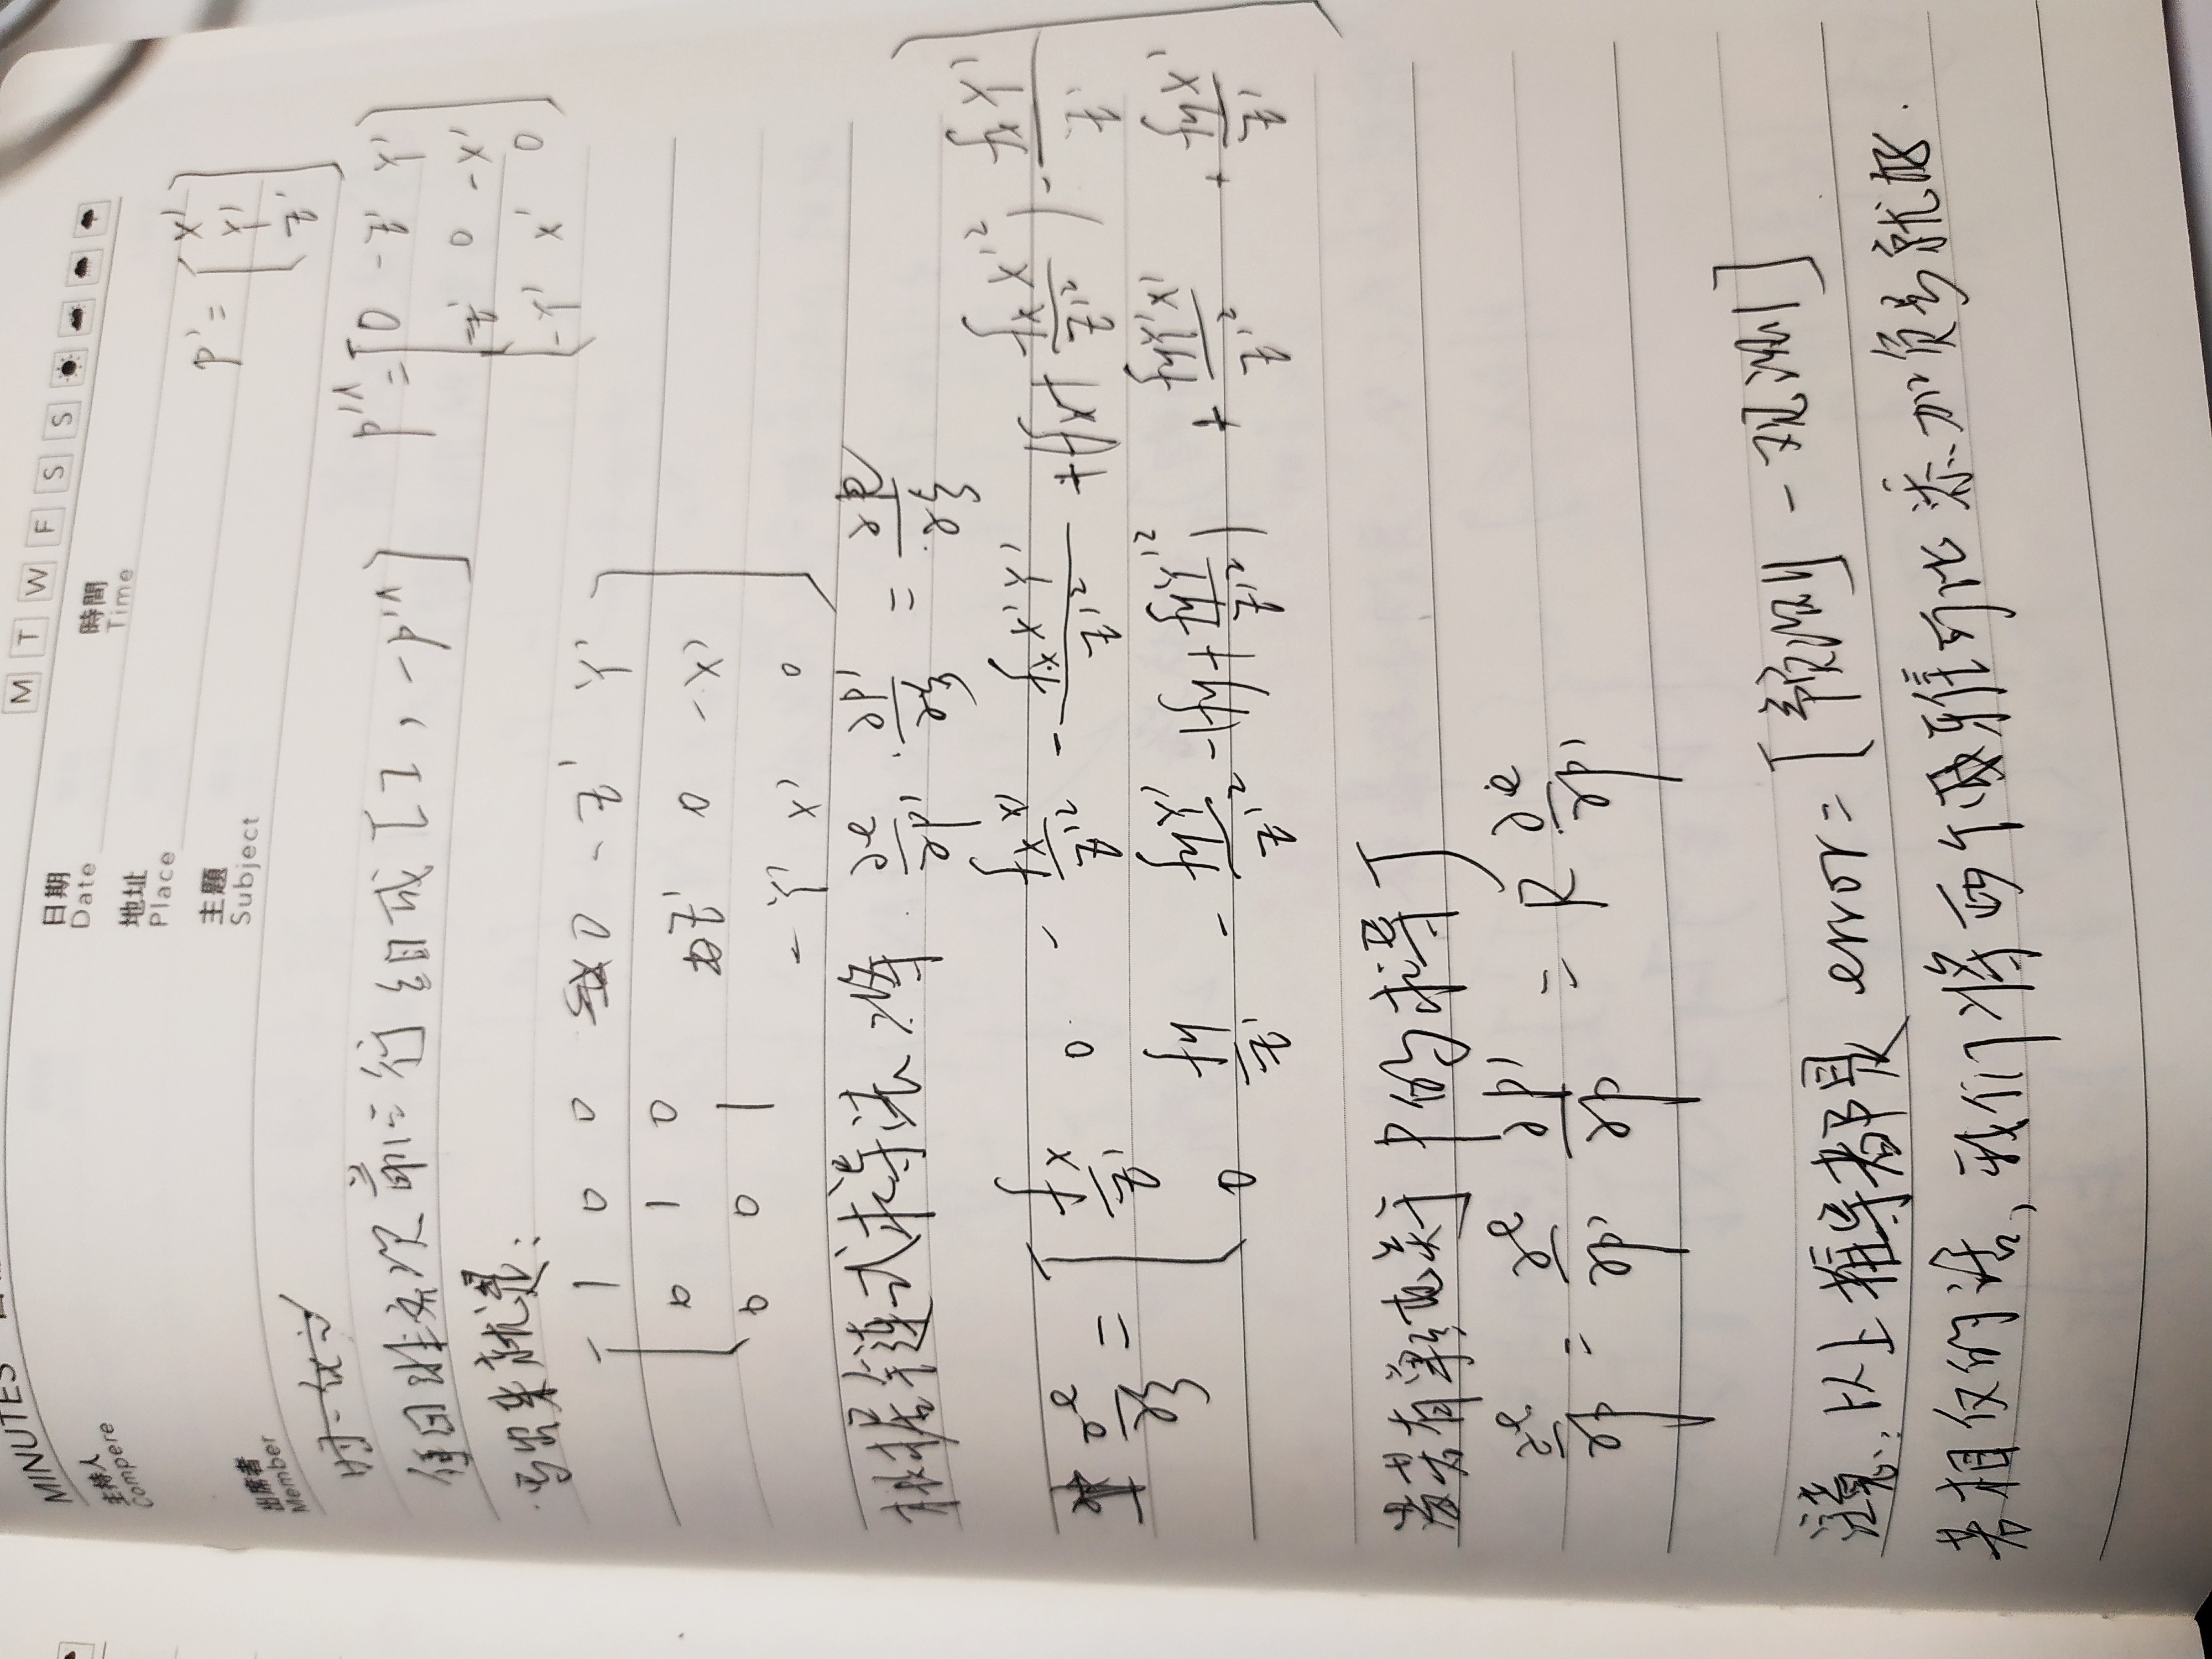 MINUTES
M T W F S S
主持人
Compere
日期
Date
時間
Time
地址
Place
主題
Subject
出席者
Member
P' = [X' Y' Z']
前三行组成 [I, -P'^]
P'^ = [0 -Z' Y'
Z' 0 -X'
-Y' X' 0]
写出来就是:
[1 0 0 0 -Z' Y'
0 1 0 Z' 0 -X'
0 0 1 -Y' X' 0]
根据链式求导法 将 ∂e/∂p' · ∂p'/∂ξ = ∂e/∂ξ
∂e/∂ξ = [fx/Z' 0 -fxX'/Z'² -fxX'Y'/Z'² +(fx+fxX'²/Z'²) -fxY'/Z'
0 fy/Z' -fyY'/Z'² -(fy+fyY'²/Z'²) +fyY'X'/Z'² +fyX'/Z']
若有单独关于P的求导
∂e/∂p = ∂e/∂p' ∂p'/∂p = R ∂e/∂p'
注意:以上推导都是 error=[预测-观测]
若相反的话,我们将两个雅可比添加负号就好.